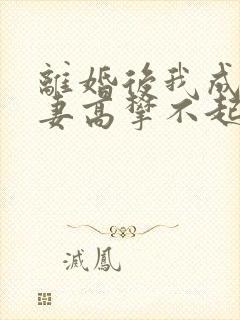 離婚後我成
妻高攀不起
滅鳳